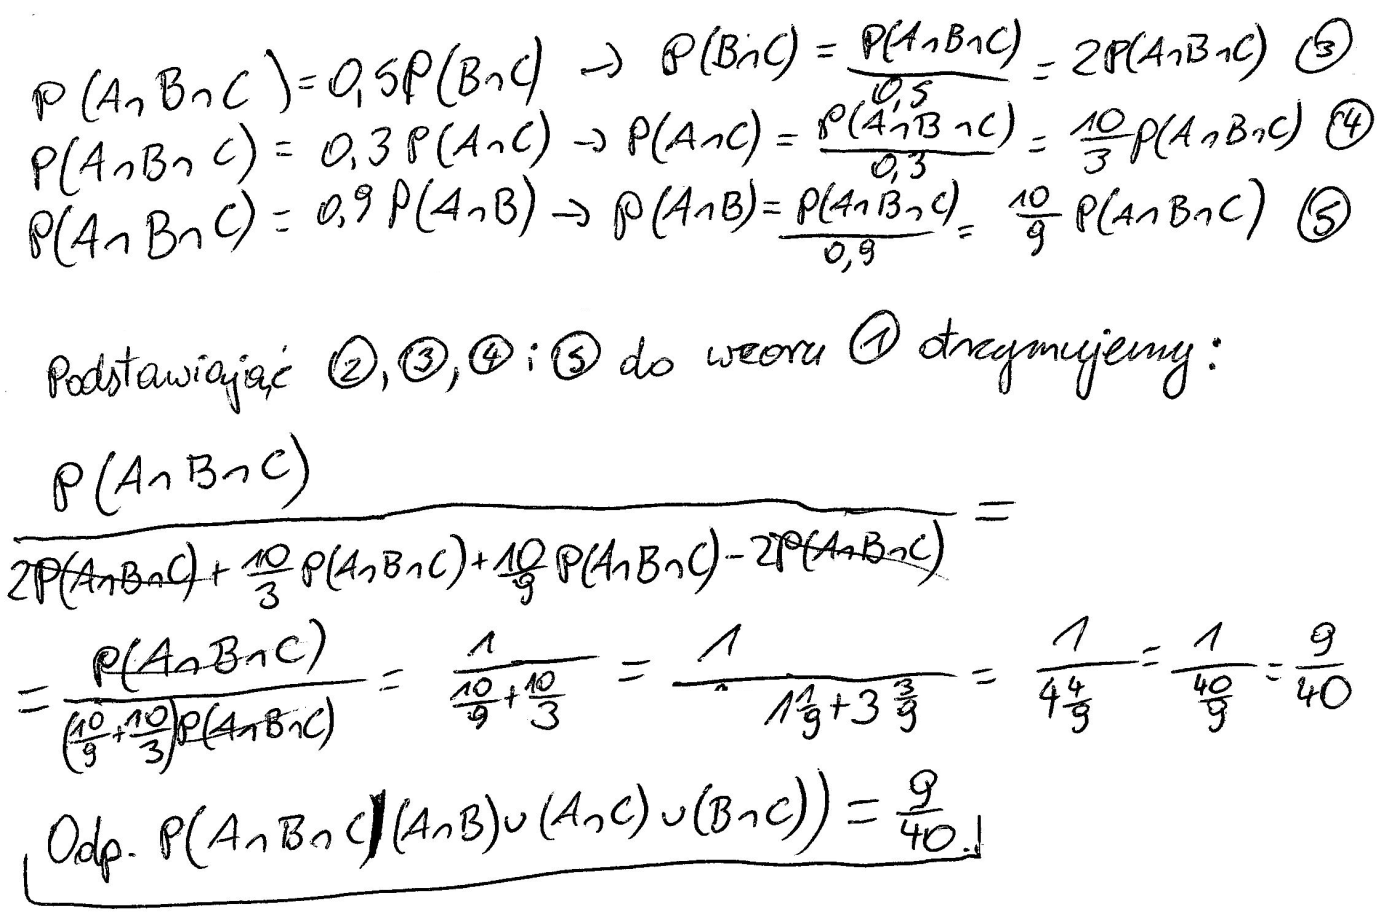 P(A∩B∩C)=0,5P(B∩C) → P(B∩C) = P(A∩B∩C)/0,5 = 2P(A∩B∩C) ③
P(A∩B∩C) = 0,3 P(A∩C) → P(A∩C) = P(A∩B∩C)/0,3 = 10/3 P(A∩B∩C) ④
P(A∩B∩C) = 0,9 P(A∩B) → P(A∩B) = P(A∩B∩C)/0,9 = 10/9 P(A∩B∩C) ⑤
Podstawiająć ②, ③, ④ i ⑤ do wzoru ① otrzymujemy:
P(A∩B∩C)/(2P(A∩B∩C) + 10/3 P(A∩B∩C) + 10/9 P(A∩B∩C) - 2P(A∩B∩C)) =
= P(A∩B∩C)/((10/9 + 10/3)P(A∩B∩C)) = 1/(10/9 + 10/3) = 1/(1 1/9 + 3 3/9) = 1/(4 4/9) = 1/(40/9) = 9/40
Odp. P(A∩B∩C|(A∩B)∪(A∩C)∪(B∩C)) = 9/40.